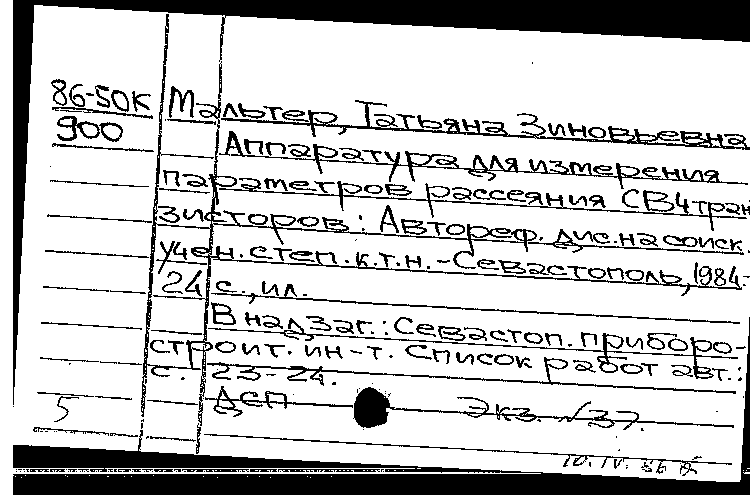 86-50К Мальтер, Татьяна Зиновьевна
900 Аппаратура для измерения
параметров рассеяния СВЧ тран
зисторов: Автореф. дис. на соиск.
учен. степ. к.т.н. - Севастополь, 1984.-
24 с., ил.
В надзаг.: Севастоп. приборо-
строит. ин-т. Список работ авт.:
с. 23-24.
ДСП Экз. №37.
5
10.IV.86